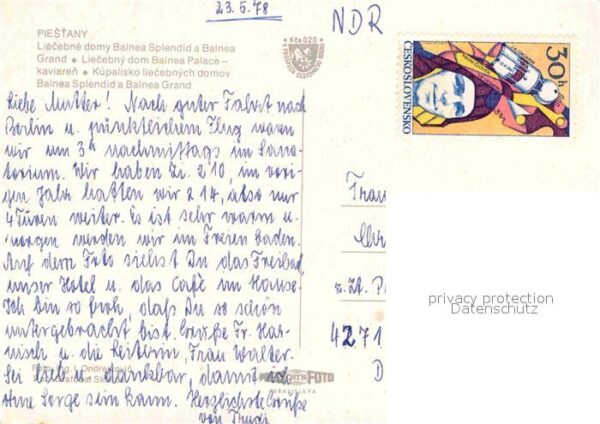 23.5.78
NDR
PIEŠŤANY
Liečebné domy Balnea Splendid a Balnea
Grand • Liečebný dom Balnea Palace –
kaviareň • Kúpalisko liečebných domov
Balnea Splendid a Balnea Grand
Kčs 0,20
30 h
ČESKOSLOVENSKO
Liebe Mutter! Nach guter Fahrt nach
Berlin u. pünktlichem Flug waren
wir um 3h nachmittags im Sana-
torium. Wir haben Zi. 210, im vori-
gen Jahr hatten wir 214, also nur
4 Türen weiter. Es ist sehr warm u.
morgen werden wir im Freien baden.
Auf dem Foto siehst Du das Freibad,
unser Hotel u. das Café im Hause.
Ich bin so froh, daß Du so schön
untergebracht bist. Grüße Fr. Har-
nisch u. die Leiterin, Frau Walter.
Sei lieb u. dankbar, damit ich
ohne Sorge sein kann. Herzlichste Grüße
von Trudi
Frau
z. Zt. P
4271
D
privacy protection
Datenschutz
FOTO
BRATISLAVA